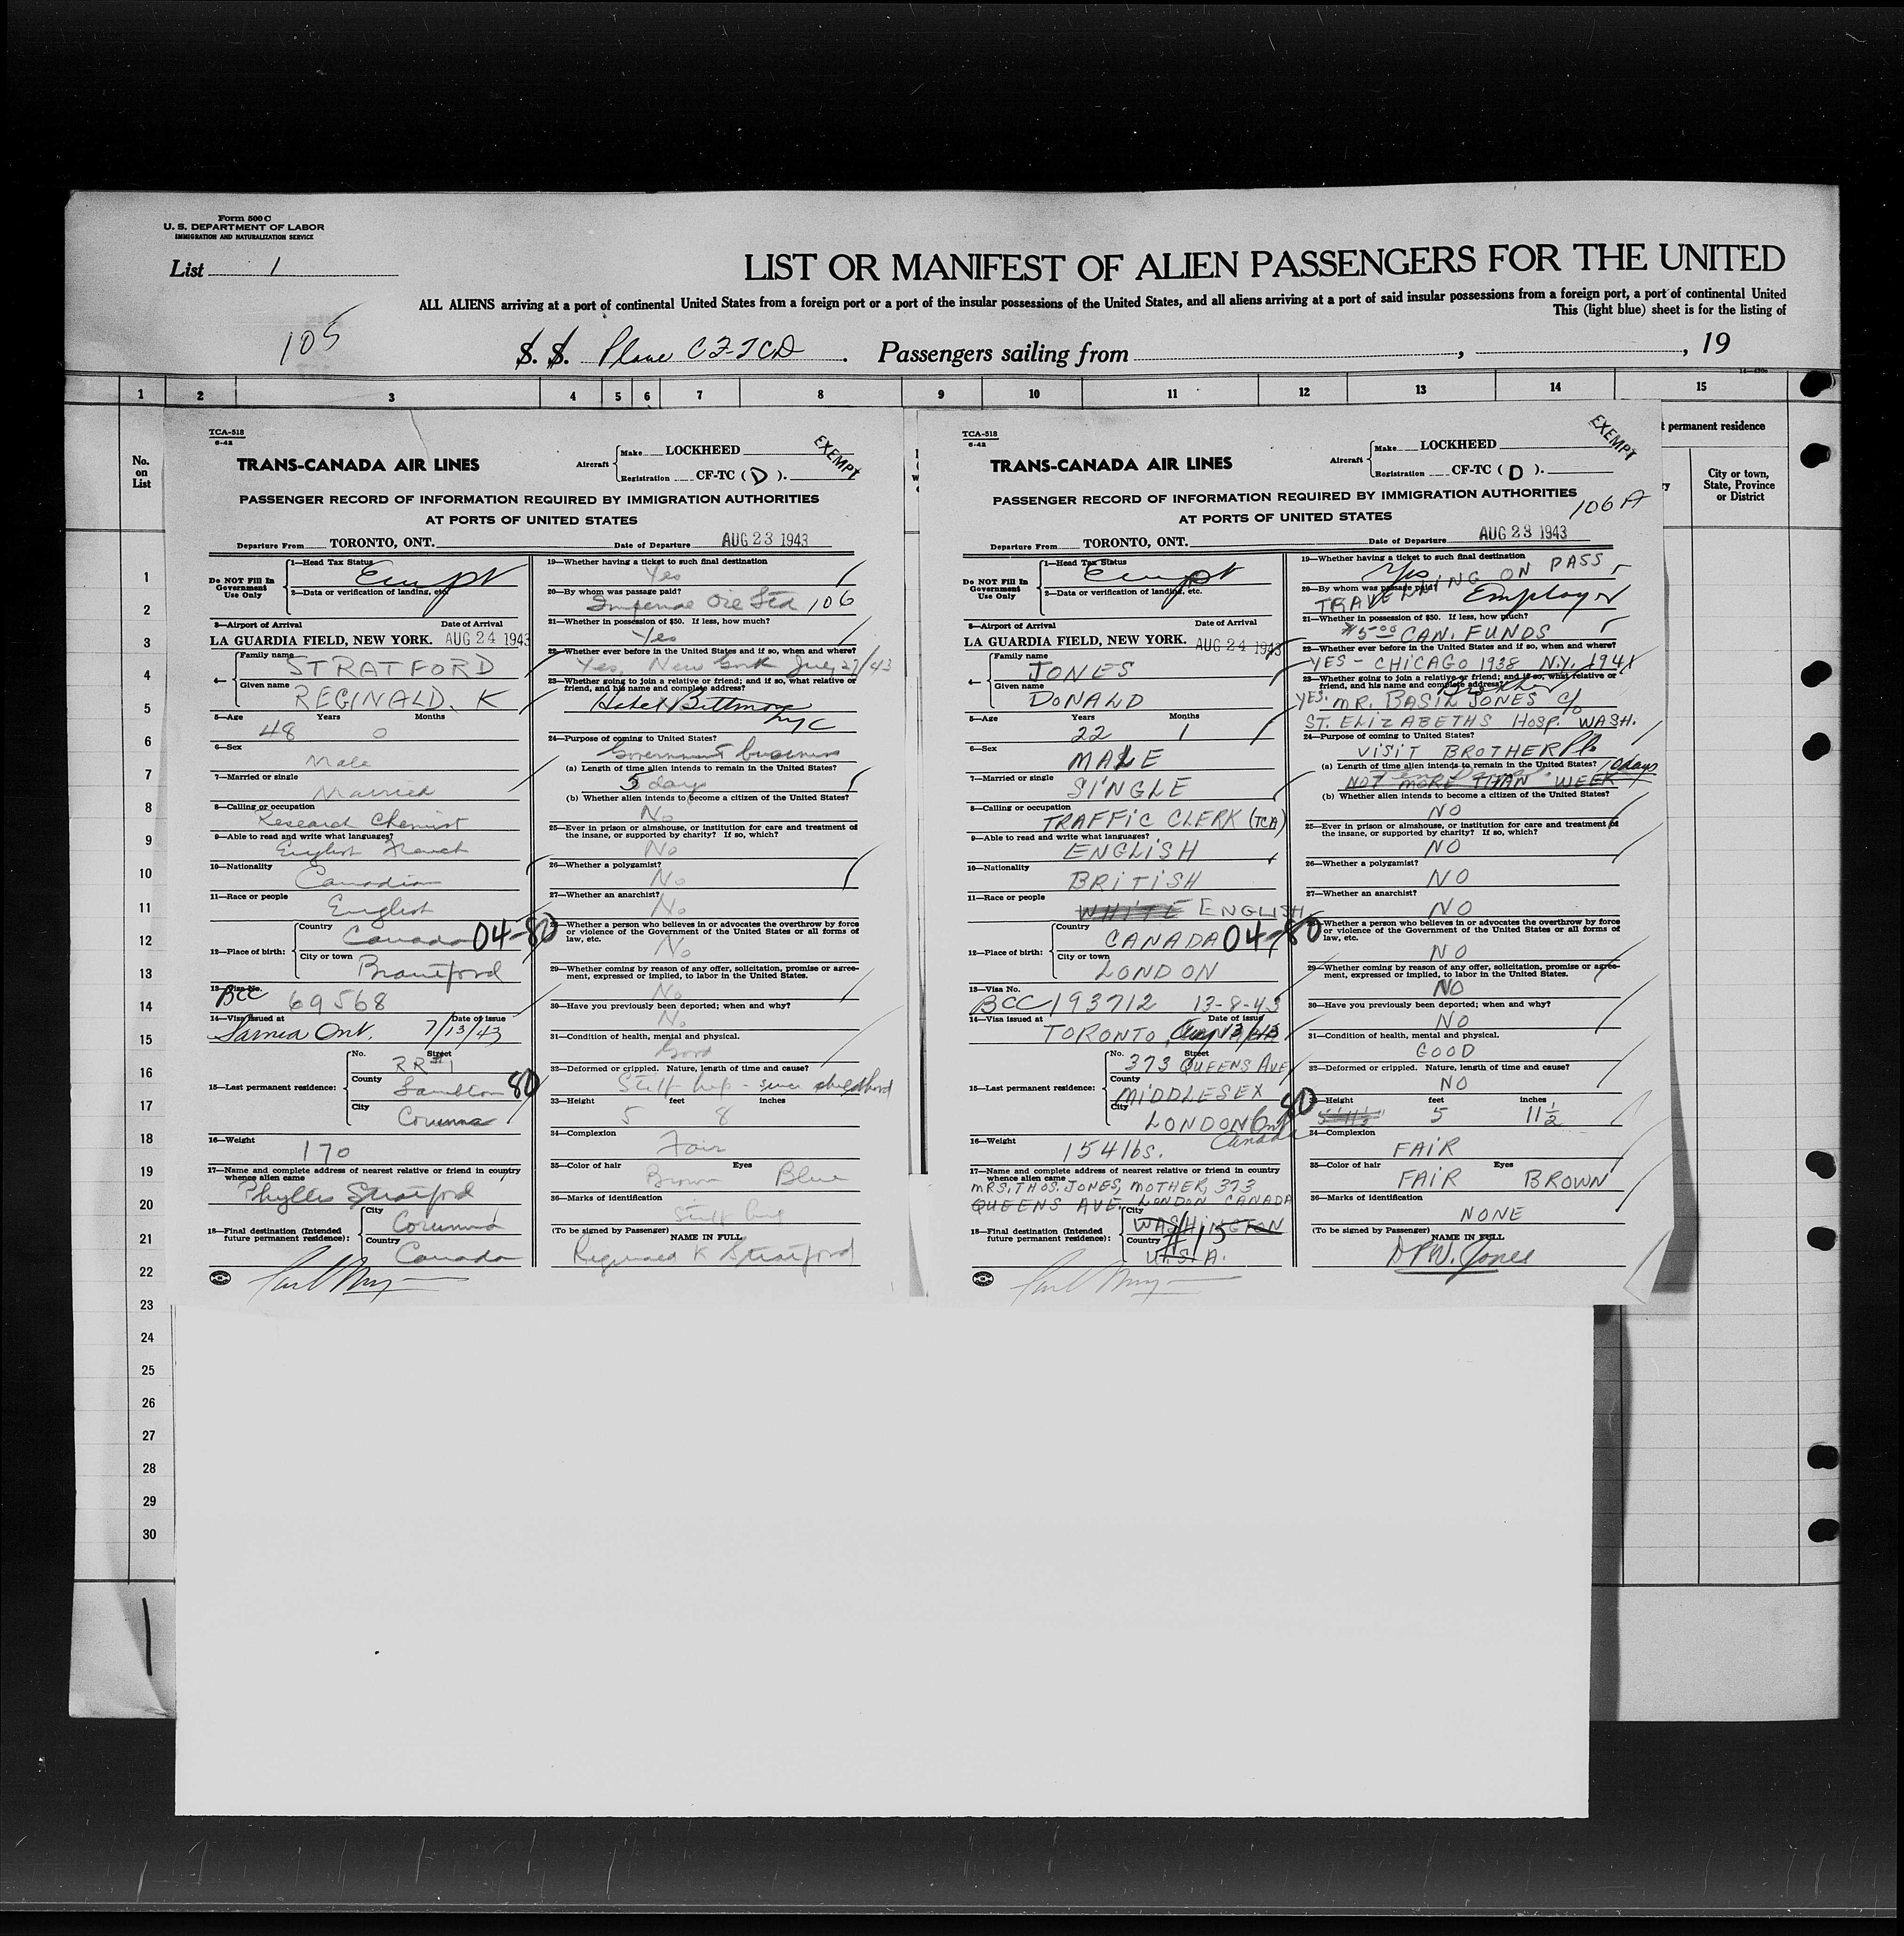 Form 500 C
U. S. DEPARTMENT OF LABOR
IMMIGRATION AND NATURALIZATION SERVICE
List 1
LIST OR MANIFEST OF ALIEN PASSENGERS FOR THE UNITED
ALL ALIENS arriving at a port of continental United States from a foreign port or a port of the insular possessions of the United States, and all aliens arriving at a port of said insular possessions from a foreign port, a port of continental United
This (light blue) sheet is for the listing of
105
S. S. Plane CF-TCD . Passengers sailing from , , 19
1 2 3 4 5 6 7 8 9 10 11 12 13 14 15
No. on List
permanent residence
City or town, State, Province or District
1
2
3
4
5
6
7
8
9
10
11
12
13
14
15
16
17
18
19
20
21
22
23
24
25
26
27
28
29
30
TCA-518
6-42
TRANS-CANADA AIR LINES
Aircraft
Make LOCKHEED
Registration CF-TC ( D ).
EXEMPT
PASSENGER RECORD OF INFORMATION REQUIRED BY IMMIGRATION AUTHORITIES
AT PORTS OF UNITED STATES
Departure From TORONTO, ONT. Date of Departure AUG 23 1943
Do NOT Fill In Government Use Only
1—Head Tax Status
Exempt
2—Data or verification of landing, etc.
3—Airport of Arrival Date of Arrival
LA GUARDIA FIELD, NEW YORK. AUG 24 1943
4— Family name STRATFORD
Given name REGINALD. K
5—Age Years Months
48 0
6—Sex
Male
7—Married or single
Married
8—Calling or occupation
Research Chemist
9—Able to read and write what languages?
English French
10—Nationality
Canadian
11—Race or people
English
12—Place of birth: Country
Canada 04-80
City or town
Brantford
13—Visa No.
BCC 69568
14—Visa issued at Date of issue
Sarnia Ont. 7/13/43
15—Last permanent residence: No. Street
RR #1
County
Lambton 80
City
Corunna
16—Weight
170
17—Name and complete address of nearest relative or friend in country whence alien came
Phyllis Stratford
18—Final destination (Intended future permanent residence): City
Corunna
Country
Canada
19—Whether having a ticket to such final destination
Yes
20—By whom was passage paid?
Imperial Oil Ltd 106
21—Whether in possession of $50. If less, how much?
Yes
22—Whether ever before in the United States and if so, when and where?
Yes, New York July 27/43
23—Whether going to join a relative or friend; and if so, what relative or friend, and his name and complete address?
Hotel Biltmore
NYC
24—Purpose of coming to United States?
Government business
(a) Length of time alien intends to remain in the United States?
5 days
(b) Whether alien intends to become a citizen of the United States?
No
25—Ever in prison or almshouse, or institution for care and treatment of the insane, or supported by charity? If so, which?
No
26—Whether a polygamist?
No
27—Whether an anarchist?
No
28—Whether a person who believes in or advocates the overthrow by force or violence of the Government of the United States or all forms of law, etc.
No
29—Whether coming by reason of any offer, solicitation, promise or agreement, expressed or implied, to labor in the United States.
No
30—Have you previously been deported; when and why?
No
31—Condition of health, mental and physical.
Good
32—Deformed or crippled. Nature, length of time and cause?
Stiff hip - since childhood
33—Height feet inches
5 8
34—Complexion
Fair
35—Color of hair Eyes
Brown Blue
36—Marks of identification
Stiff hip
(To be signed by Passenger) NAME IN FULL
Reginald K Stratford
TCA-518
6-42
TRANS-CANADA AIR LINES
Aircraft
Make LOCKHEED
Registration CF-TC ( D ).
EXEMPT
PASSENGER RECORD OF INFORMATION REQUIRED BY IMMIGRATION AUTHORITIES
106 A
AT PORTS OF UNITED STATES
Departure From TORONTO, ONT. Date of Departure AUG 23 1943
Do NOT Fill In Government Use Only
1—Head Tax Status
Exempt
2—Data or verification of landing, etc.
3—Airport of Arrival Date of Arrival
LA GUARDIA FIELD, NEW YORK. AUG 24 1943
4— Family name JONES
Given name DONALD
5—Age Years Months
22 1
6—Sex
MALE
7—Married or single
SINGLE
8—Calling or occupation
TRAFFIC CLERK (TCA)
9—Able to read and write what languages?
ENGLISH
10—Nationality
BRITISH
11—Race or people
WHITE ENGLISH
12—Place of birth: Country
CANADA 04-80
City or town
LONDON
13—Visa No.
BCC 193712 13-8-43
14—Visa issued at Date of issue
TORONTO, Aug 13/43
15—Last permanent residence: No. Street
373 QUEENS AVE
County
MIDDLESEX
City
LONDON Ont 80
Canada
16—Weight
154 lbs.
17—Name and complete address of nearest relative or friend in country whence alien came
MRS. THOS. JONES, MOTHER, 373
QUEENS AVE. LONDON CANADA
18—Final destination (Intended future permanent residence): City
WASHINGTON
Country #15
U.S.A.
19—Whether having a ticket to such final destination
Yes TRAVELLING ON PASS
20—By whom was passage paid?
Employer
21—Whether in possession of $50. If less, how much?
$5.00 CAN. FUNDS
22—Whether ever before in the United States and if so, when and where?
YES - CHICAGO 1938 N.Y. 1941
23—Whether going to join a relative or friend; and if so, what relative or friend, and his name and complete address?
Brother
YES. MR. BASIL JONES C/o
ST. ELIZABETHS HOSP. WASH.
24—Purpose of coming to United States?
VISIT BROTHER
(a) Length of time alien intends to remain in the United States? 10 days
NOT MORE THAN WEEK
(b) Whether alien intends to become a citizen of the United States?
NO
25—Ever in prison or almshouse, or institution for care and treatment of the insane, or supported by charity? If so, which?
NO
26—Whether a polygamist?
NO
27—Whether an anarchist?
NO
28—Whether a person who believes in or advocates the overthrow by force or violence of the Government of the United States or all forms of law, etc.
NO
29—Whether coming by reason of any offer, solicitation, promise or agreement, expressed or implied, to labor in the United States.
NO
30—Have you previously been deported; when and why?
NO
31—Condition of health, mental and physical.
GOOD
32—Deformed or crippled. Nature, length of time and cause?
NO
33—Height feet inches
5 11 1/2
34—Complexion
FAIR
35—Color of hair Eyes
FAIR BROWN
36—Marks of identification
NONE
(To be signed by Passenger) NAME IN FULL
D.P.W. Jones